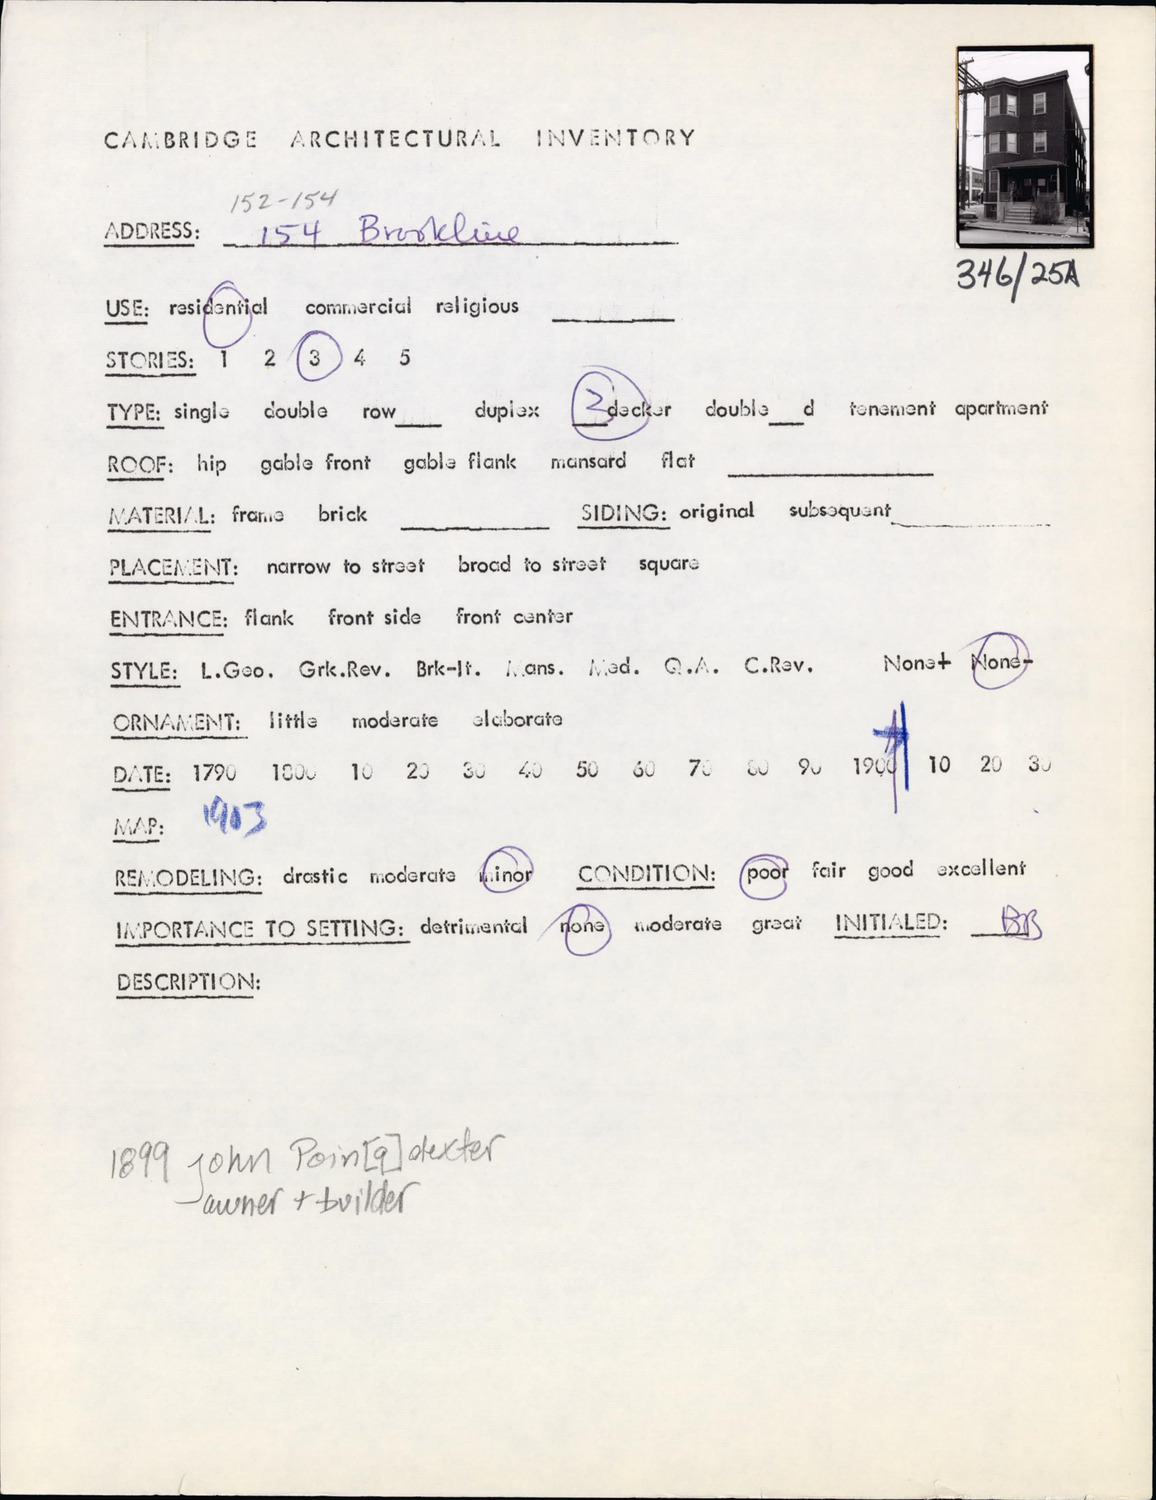 CAMBRIDGE ARCHITECTURAL INVENTORY
152-154
ADDRESS: 154 Brookline
346/25A
USE: residential commercial religious
STORIES: 1 2 3 4 5
TYPE: single double row___ duplex decker double___d tenement apartment
ROOF: hip gable front gable flank mansard flat
MATERIAL: frame brick SIDING: original subsequent
PLACEMENT: narrow to street broad to street square
ENTRANCE: flank front side front center
STYLE: L.Geo. Grk.Rev. Brk-It. Mans. Med. Q.A. C.Rev. None+ None-
ORNAMENT: little moderate elaborate
DATE: 1790 1800 10 20 30 40 50 60 70 80 90 1900 10 20 30
MAP: 1903
REMODELING: drastic moderate minor CONDITION: poor fair good excellent
IMPORTANCE TO SETTING: detrimental none moderate great INITIALED: BB
DESCRIPTION:
1899 John Poin[q]dexter
owner + builder